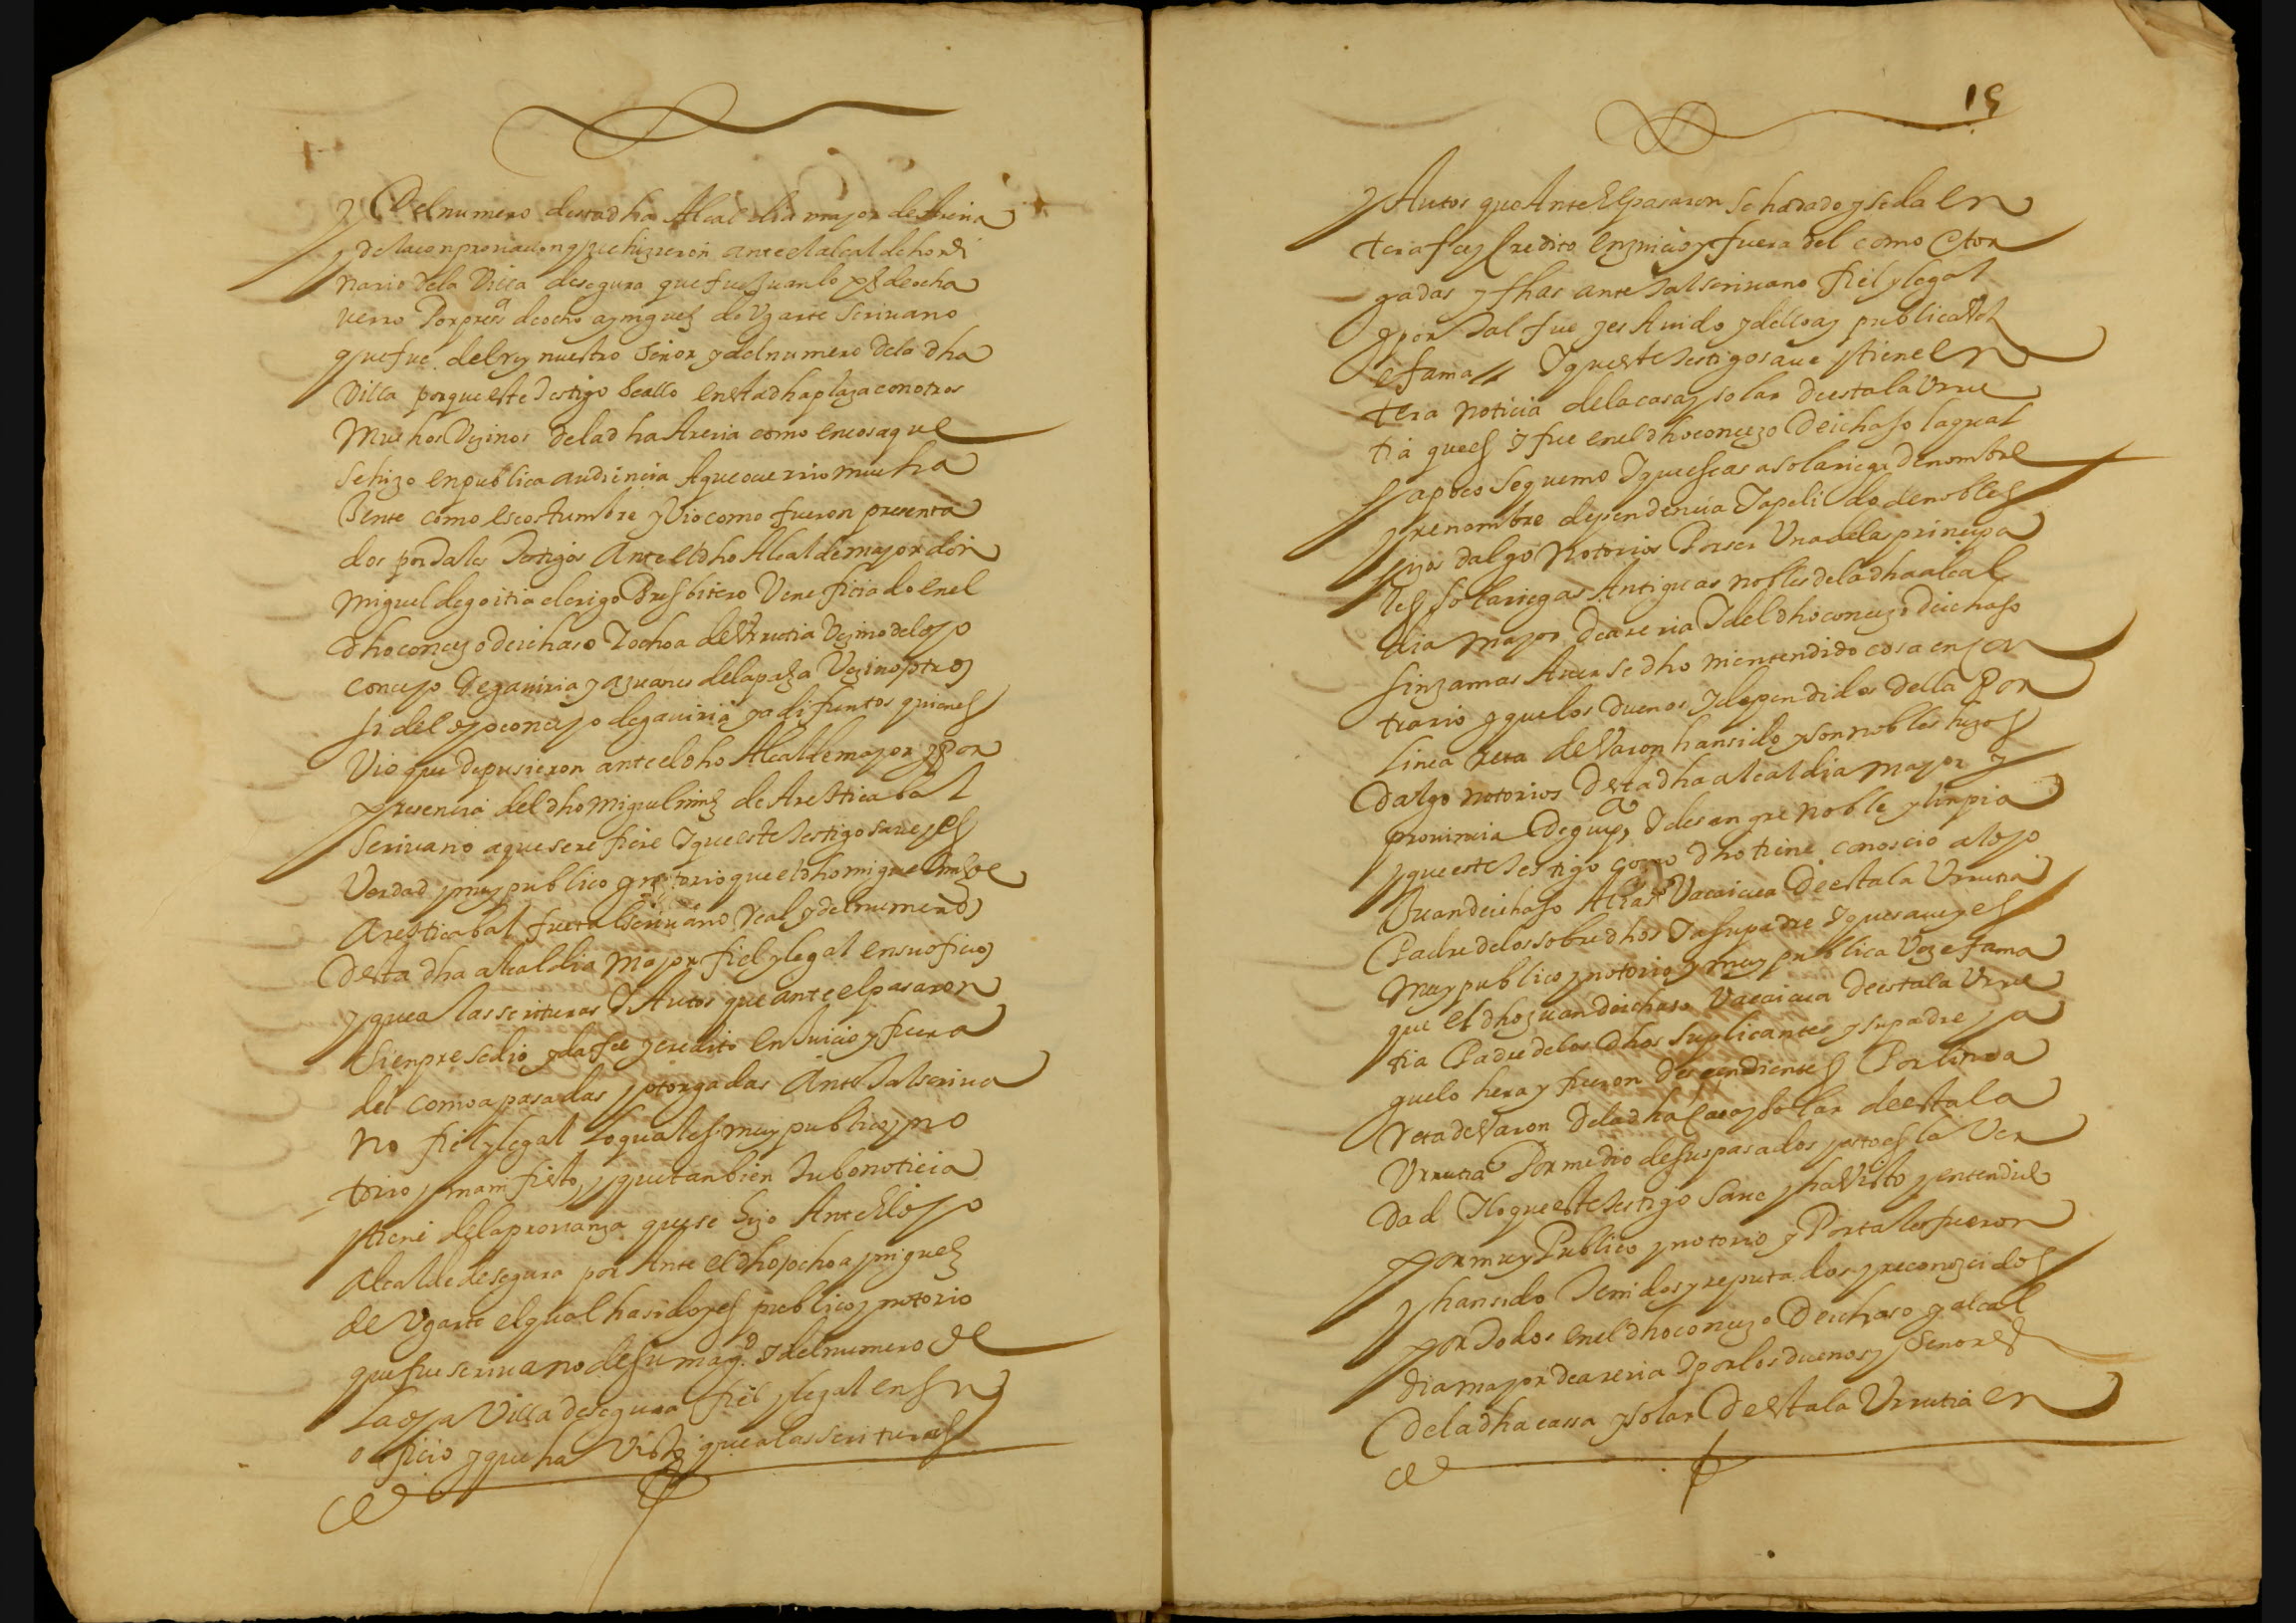 y Del numero desta dha Alcaldia mayor de Areria
y dela conprouacion que hizieron ante el alcalde hordi
nario dela Villa de segura que fue Juan lopez de ocha
ueno Por pressa de ocho a y miguel de Vgarte scriuano
que fue del rey nuestro señor y del numero dela dha
Villa porque este testigo se allo en la dha plaza con otros
Muchos Vezinos dela dha Areria como en cosa que
se hizo en publica audiencia A que ocurrio mucha
Jente como es costumbre y Vio como fueron presenta
dos por tales testigos Ante el dho Alcalde mayor don
Miguel de goitia clerigo Presbitero Veneficiado en el
dho concejo de ichaso y ochoa de Vrrutia Vezino del dho
concejo De gauiria y a Juanes de la paza Vezino otro
si del dho concejo de gauiria ya difuntos quienes
Vio que depusieron ante el dho Alcalde mayor y Por
presencia del dho Miguel miñz de Aresticabal
scriuano a que se refiere y que este testigo saue y es
Verdad y muy publico y notorio que el dho miguel minz de
Aresticabal fue tal scriuano Real y del numero
Desta dha alcaldia Mayor fiel y legal en su oficio
y que a las scrituras y Autos que ante el pasaron
sienpre se dio y da fee y credito en Juicio y fuera
del como a pasadas y otorgadas Ante tal scriua
no fiel y legal Lo qual es muy publico y no
torio y manifiesto, y que tanbien tubo noticia
y tiene dela prouanza que se hizo Ante El dho
Alcalde de segura por Ante el dho ochoa y miguel
de Vgarte el qual ha sido y es publico y notorio
que fue scriuano de su magd. y del numero de
La dha Villa de segura fiel y legal en su
oficio y que ha Visto que a las scrituras
15
y Autos que Ante El pasaron se ha dado y se da en
tera fee y Credito en Juicio y fuera del como Otor
gadas y fhas ante tal scriuano fiel y legal
y por tal fue y es Auido y dello ay publica Voz
e fama // Y que este testigo saue y tiene en
tera noticia de la casa y solar de estala Vrru
tia que es y fue en el dho concejo De ichaso la qual
y que es casa solariega de nombre
y renombre dependencia y apelido de nobles
hijos dalgo Notorios Por ser Vna de las principa
les solariegas Antiguas nobles de la dha alcal
dia mayor De areria y del dho concejo de ichaso
sin Jamas Auerse dho ni entendido cosa en con
trario y que los dueños y dependidos della Por
linea reta de Varon han sido y son nobles hijos
Dalgo notorios Desta dha alcaldia mayor y
prouincia De guipa y de sangre noble y linpia
y que este testigo como dho tiene conoscio al dho
Juan de ichaso Alias Vacaicua De estala Vrrutia
Padre de los sobre dhos y a su padre y que saue y es
Muy publico y notorio y muy publica Voz e fama
que el dho Juan de ichaso Vacaicua De estala Vrru
tia Padre de los dhos suplicantes y su padre y a
guelo hera y fueron descendientes Por linea
reta de Varon De la dha Casa y solar de estala
Vrrutia Por medio de sus pasados y esto es la Ver
dad y lo que este testigo saue y ha Visto y entendido
por muy Publico y notorio y Por tales fueron
y han sido tenidos y reputados y reconozcidos
por todos en el dho concejo De ichaso y alcal
dia mayor de areria y por los dueños y señores
De la dha cassa y solar De estala Vrrutia en